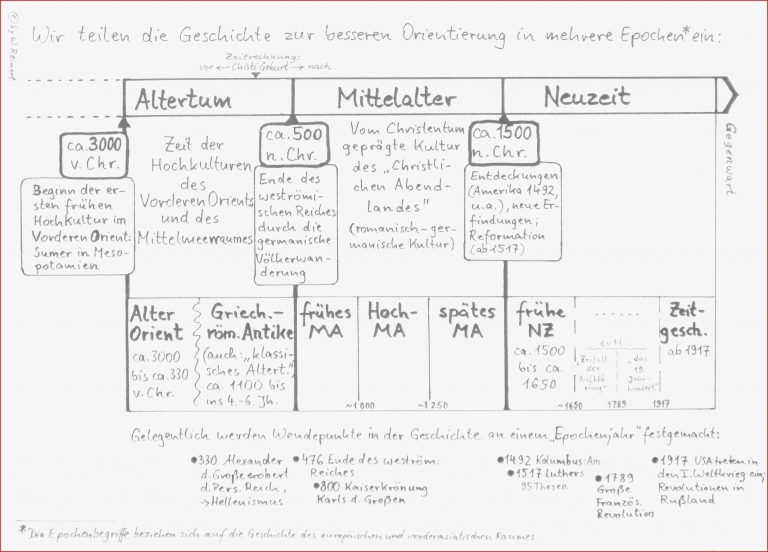 © Sylvi Reinert
Wir teilen die Geschichte zur besseren Orientierung in mehrere Epochen* ein:
Zeitrechnung:
vor ← Christi Geburt → nach
Altertum
Mittelalter
Neuzeit
Gegenwart
ca. 3000
v. Chr.
Beginn der er-
sten frühen
Hochkultur im
Vorderen Orient:
Sumer in Meso-
potamien
Zeit der
Hochkulturen
des
Vorderen Orients
und des
Mittelmeerraumes
ca. 500
n. Chr.
Ende des
weströmi-
schen Reiches
durch die
germanische
Völkerwan-
derung
Vom Christentum
geprägte Kultur
des „Christli-
chen Abend-
landes"
(romanisch-ger-
manische Kultur)
ca. 1500
n. Chr.
Entdeckungen
(Amerika 1492,
u.a.), neue Er-
findungen;
Reformation
(ab 1517)
Alter
Orient
ca. 3000
bis ca. 330
v. Chr.
Griech.-
röm. Antike
(auch: „klassi-
sches Altert."
ca. 1100 bis
ins 4.-6. Jh.
frühes
MA
~1000
Hoch-
MA
~1250
spätes
MA
frühe
NZ
ca. 1500
bis ca.
1650
~1650
......
evtl.:
„Zeitalt.
der
Aufklä-
rung"
1789
„das
19.
Jahr-
hundert"
1917
Zeit-
gesch.
ab 1917
Gelegentlich werden Wendepunkte in der Geschichte an einem „Epochenjahr" festgemacht:
• 330 Alexander
d. Große erobert
d. Pers. Reich,
→ Hellenismus
• 476 Ende des weström.
Reiches
• 800 Kaiserkrönung
Karls d. Großen
• 1492 Kolumbus: Am.
• 1517 Luthers
95 Thesen
• 1789
Große
Französ.
Revolution
• 1917 USA treten in
den I. Weltkrieg ein;
Revolutionen in
Rußland
* Die Epochenbegriffe beziehen sich auf die Geschichte des europäischen und vorderasiatischen Raumes.